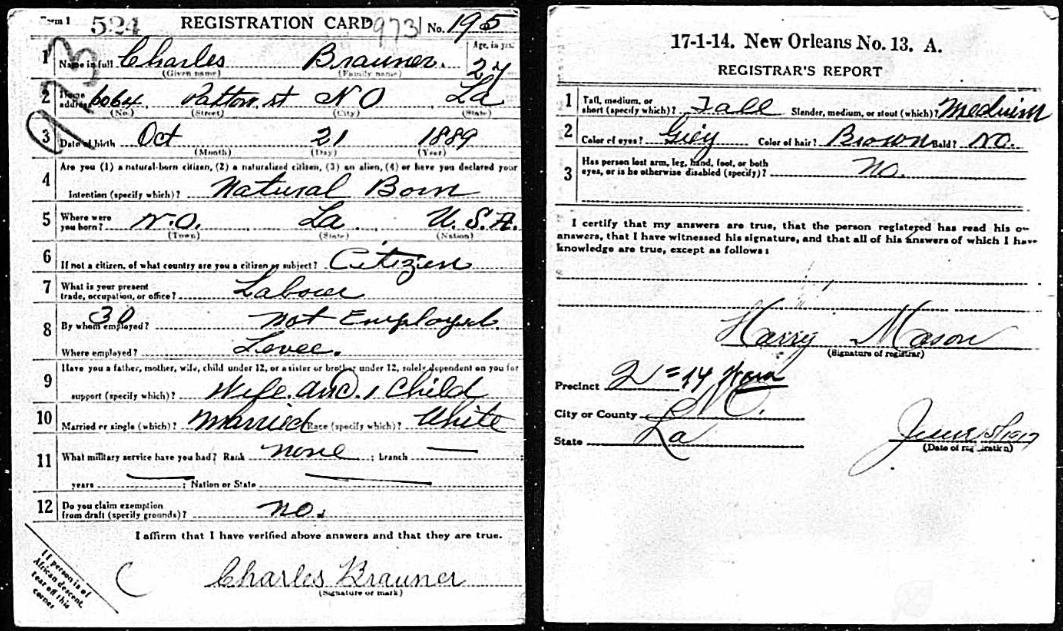 Form 1 524 REGISTRATION CARD 973 No. 195
1 Name in full Charles Brauner. Age, in yrs. 27
(Given name) (Family name)
2 Home address 6064 Patton st N O La
(No.) (Street) (City) (State)
3 Date of birth Oct 21 1889
(Month) (Day) (Year)
Are you (1) a natural-born citizen, (2) a naturalized citizen, (3) an alien, (4) or have you declared your
4 Intention (specify which)? Natural Born
5 Where were you born? N.O. La U.S.A.
(Town) (State) (Nation)
6 If not a citizen, of what country are you a citizen or subject? Citizen
7 What is your present trade, occupation, or office? Labourer
30
8 By whom employed? Not Employed
Where employed? Levee.
Have you a father, mother, wife, child under 12, or a sister or brother under 12, solely dependent on you for
9 support (specify which)? Wife. and. 1 Child
10 Married or single (which)? Married Race (specify which)? White
11 What military service have you had? Rank none ; branch
years ; Nation or State
12 Do you claim exemption from draft (specify grounds)? no.
I affirm that I have verified above answers and that they are true.
Charles Brauner
(Signature or mark)
If person is of
African descent,
tear off this
corner
17-1-14. New Orleans No. 13. A.
REGISTRAR'S REPORT
1 Tall, medium, or short (specify which)? Tall Slender, medium, or stout (which)? Medium
2 Color of eyes? Grey Color of hair? Brown Bald? No.
3 Has person lost arm, leg, hand, foot, or both eyes, or is he otherwise disabled (specify)? No.
I certify that my answers are true, that the person registered has read his o-
answers, that I have witnessed his signature, and that all of his answers of which I have
knowledge are true, except as follows:
Harry Mason
(Signature of registrar)
Precinct 2 = 14 Ward
City or County N.O.
State La
June 5/1917
(Date of registration)